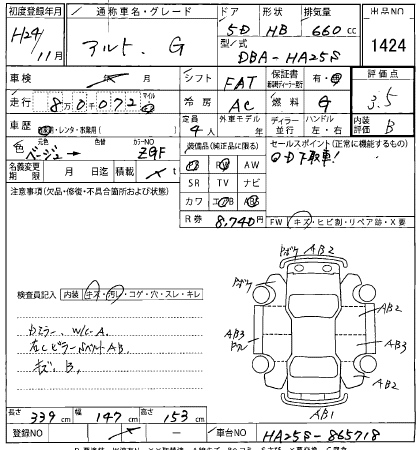 初度登録年月 通称車名・グレード ドア 形状 排気量 出品NO
H24/11月 アルト. G 5D HB 660cc 1424
型式 DBA-HA25S
車検 年 月 シフト FAT 保証書 有・無 評価点 3.5
走行 8万0千072 マイル 冷房 AC 燃料 G
車歴 自・レンタ・水業用( ) 定員 4人 外車モデル 年 ディーラー 並行 ハンドル 左・右 内装評価 B
色 元色 ベージュ→ 色替 カラーNO ZGF 装備品(純正品に限る) セールスポイント(正常に機能するもの)
下取車!
名義変更期限 月 日迄 積載 t PS PW AW
SR TV ナビ
注意事項(欠品・修復・不具合箇所および状態) カワ エアB ABS
R券 8,740円 FW キズ・ヒビ割・リペア跡・X要
検査員記入 内装 キズ・汚レ・コゲ・穴・スレ・キレ
AB2
AB2
AB3
AB3
AB2
AB1
Dミラー、W/C.A.
右Cピラー、Sベルト AB.
キズ. B.
長さ 339cm 幅 147cm 高さ 153cm
登録NO ー 車台NO HA25S-865718